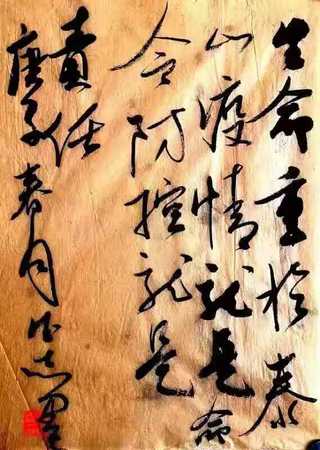 生命重於泰
山疫情就是命
令防控就是
責任
庚子春月